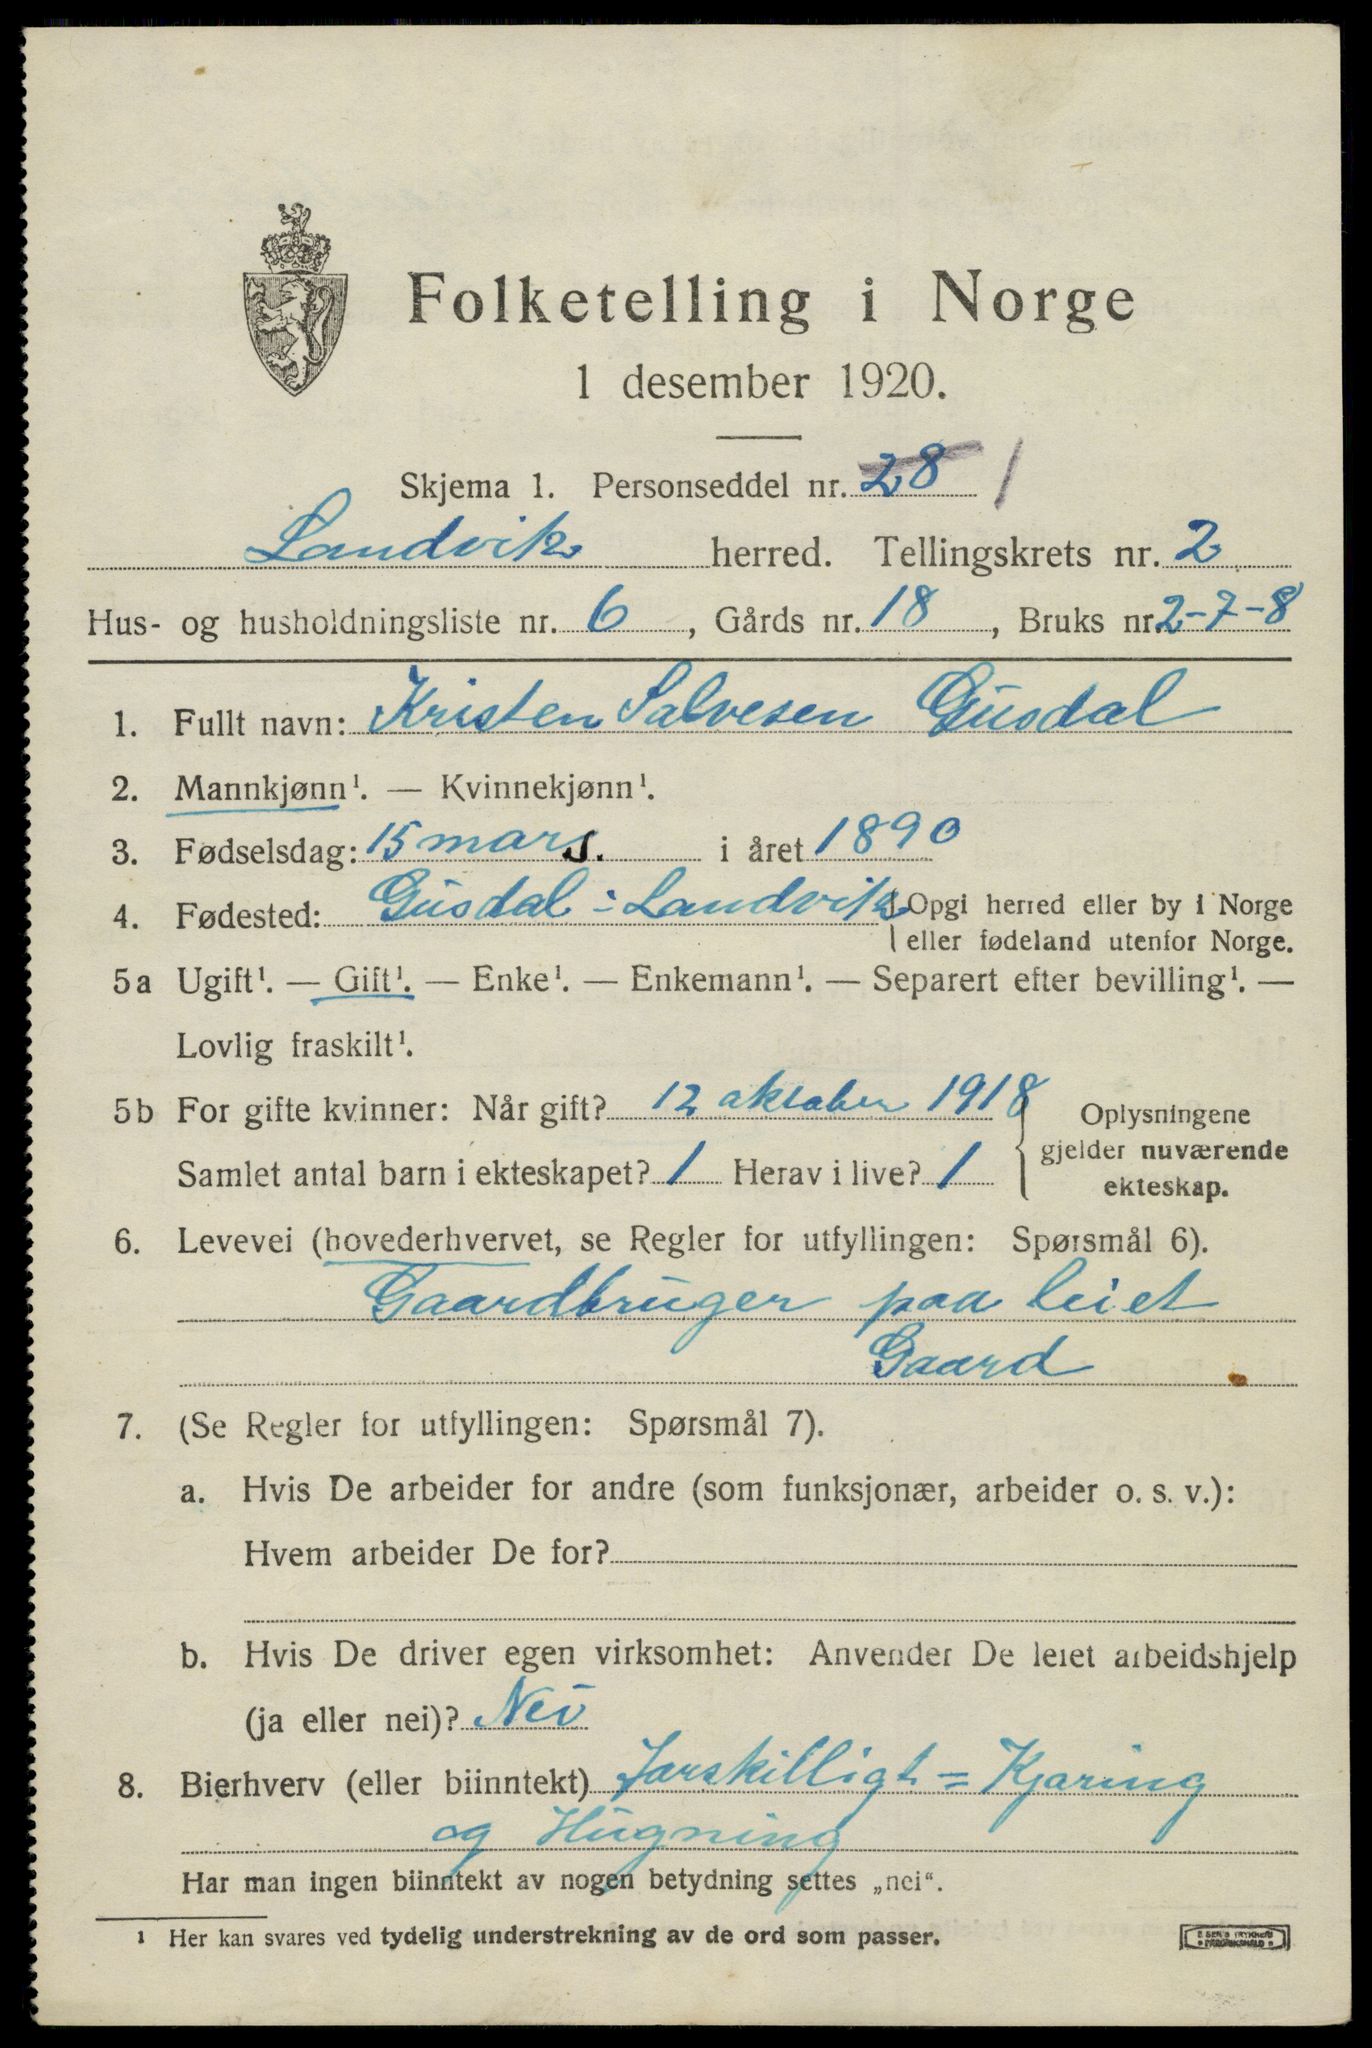 Folketelling i Norge
1 desember 1920.
Skjema 1. Personseddel nr. 28 1
Landvik herred. Tellingskrets nr. 2
Hus- og husholdningsliste nr. 6, Gårds nr. 18, Bruks nr. 2-7-8
1. Fullt navn: Kristen Salvesen Gusdal
2. Mannkjønn¹. — Kvinnekjønn¹.
3. Fødselsdag: 15 mars. i året 1890
4. Fødested: Gusdal i Landvik { Opgi herred eller by i Norge
eller fødeland utenfor Norge.
5a Ugift¹. — Gift¹. — Enke¹. — Enkemann¹. — Separert efter bevilling¹. —
Lovlig fraskilt¹.
5b For gifte kvinner: Når gift? 12 oktober 1918
Samlet antal barn i ekteskapet? 1 Herav i live? 1
Oplysningene
gjelder nuværende
ekteskap.
6. Levevei (hovederhvervet, se Regler for utfyllingen: Spørsmål 6).
Gaardbruger paa leiet
Gaard
7. (Se Regler for utfyllingen: Spørsmål 7).
a. Hvis De arbeider for andre (som funksjonær, arbeider o. s. v.):
Hvem arbeider De for?
b. Hvis De driver egen virksomhet: Anvender De leiet arbeidshjelp
(ja eller nei)? Nei
8. Bierhverv (eller biinntekt) Forskilligt = Kjøring
og Hugning
Har man ingen biinntekt av nogen betydning settes „nei“.
¹ Her kan svares ved tydelig understrekning av de ord som passer.